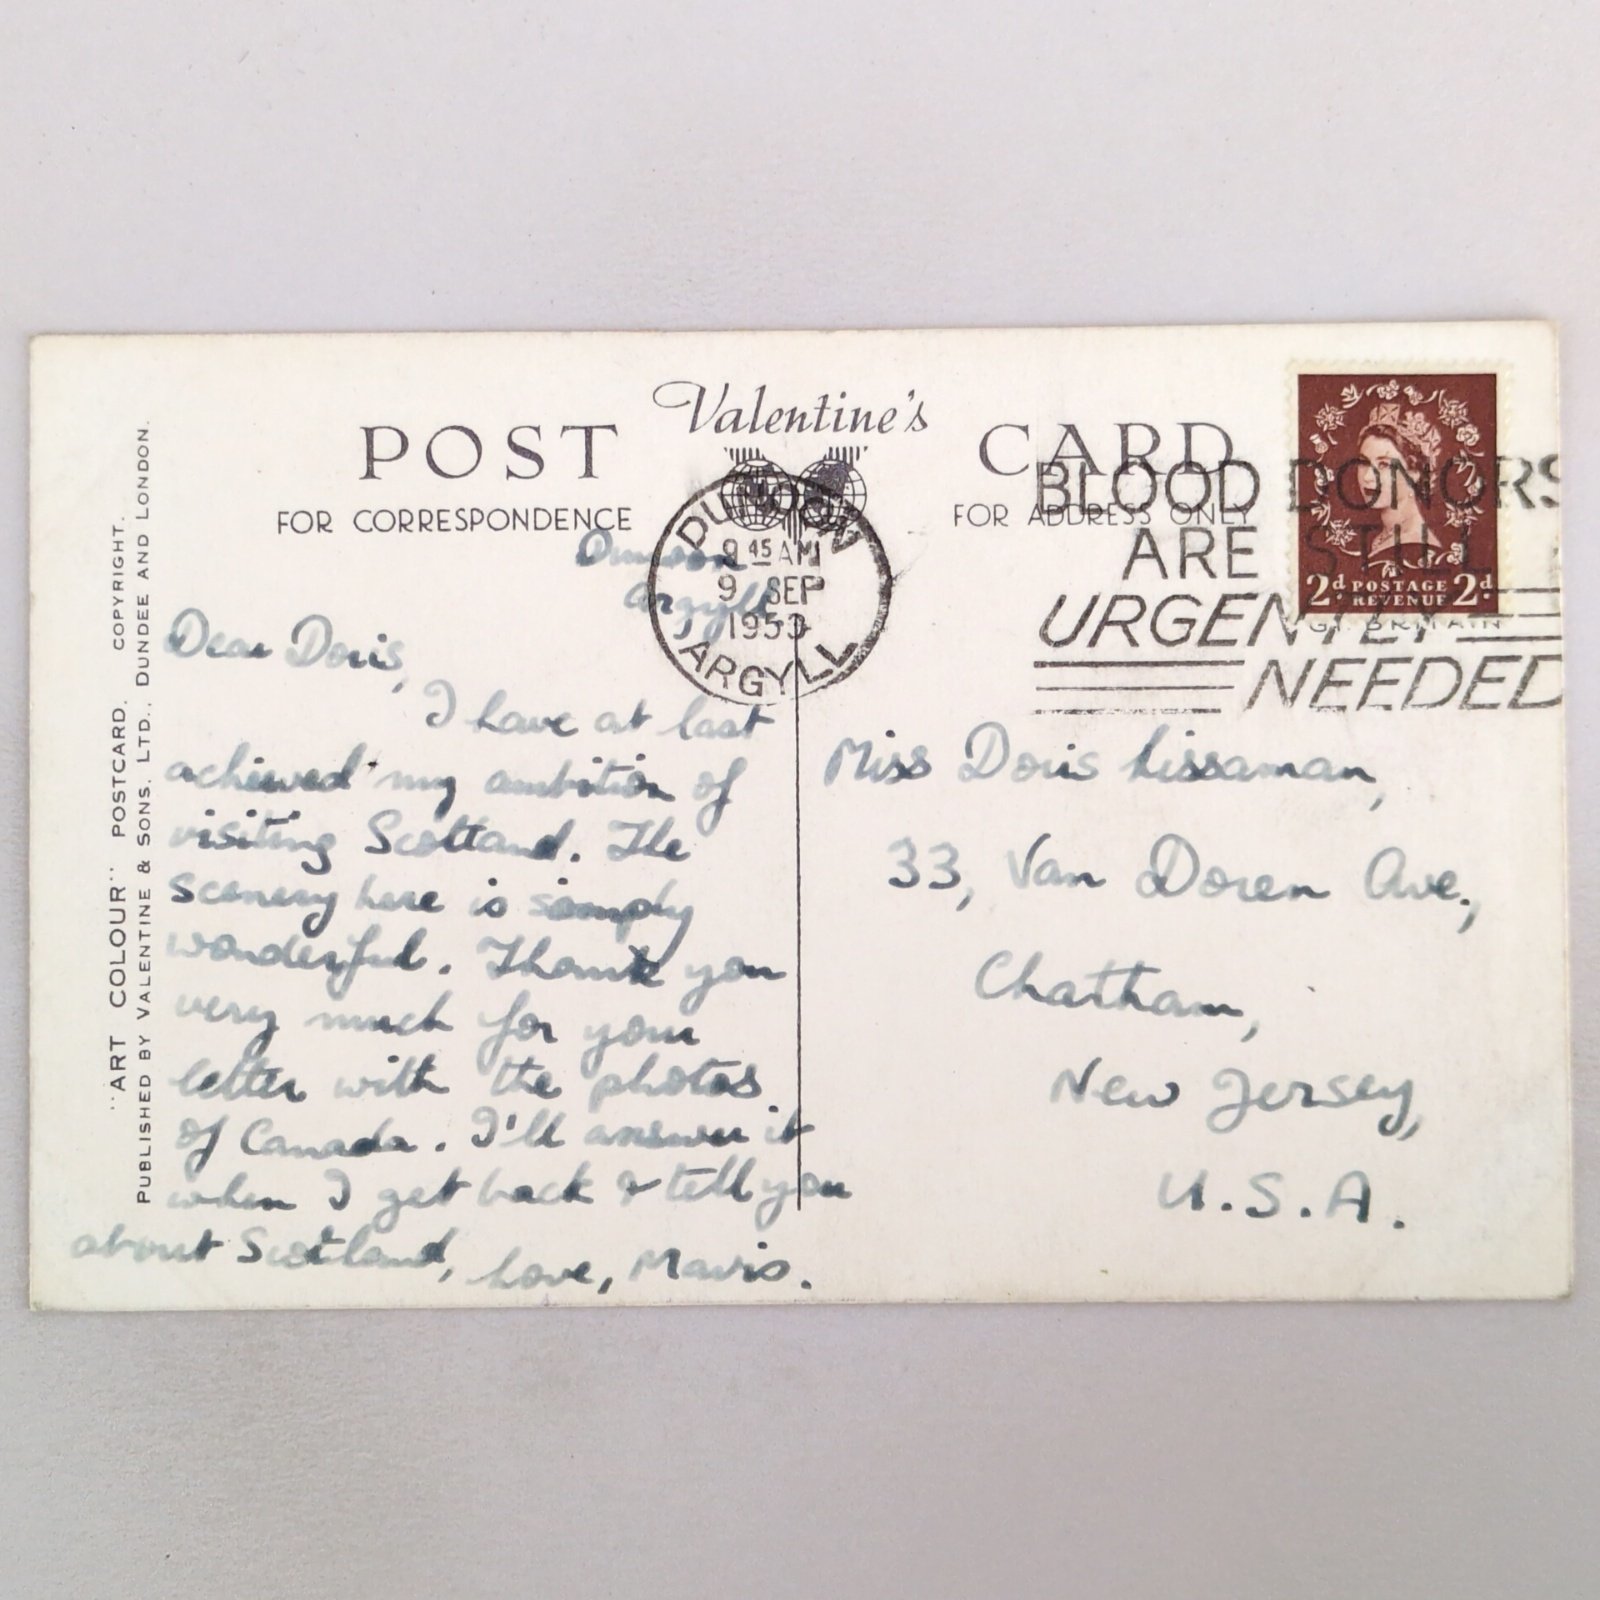 Valentine's
POST CARD
FOR CORRESPONDENCE
FOR ADDRESS ONLY
DUNOON
9 45 AM
9 SEP
ARGYLL
BLOOD DONORS
ARE STILL
URGENTLY
NEEDED
2d POSTAGE 2d
REVENUE
GT. BRITAIN
"ART COLOUR" POSTCARD. COPYRIGHT.
PUBLISHED BY VALENTINE & SONS, LTD., DUNDEE AND LONDON.
Dunoon
Argyll
Dear Doris,
I have at last
achieved my ambition of
visiting Scotland. The
scenery here is simply
wonderful. Thank you
very much for your
letter with the photos
of Canada. I'll answer it
when I get back & tell you
about Scotland, Love, Mavis.
Miss Doris Lissaman,
33, Van Doren Ave.,
Chatham,
New Jersey,
U.S.A.